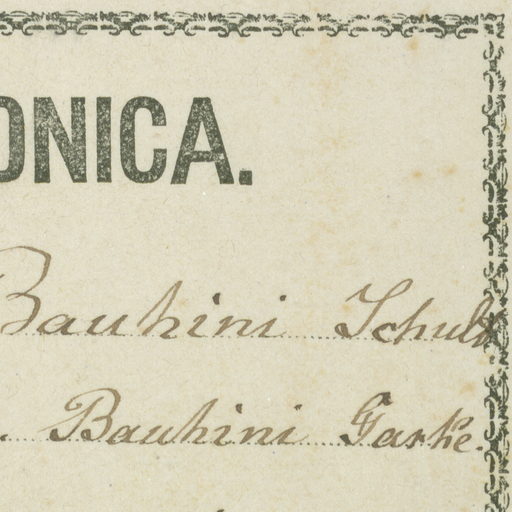 ONICA.
Bauhini Schult
. Bauhini Garke.